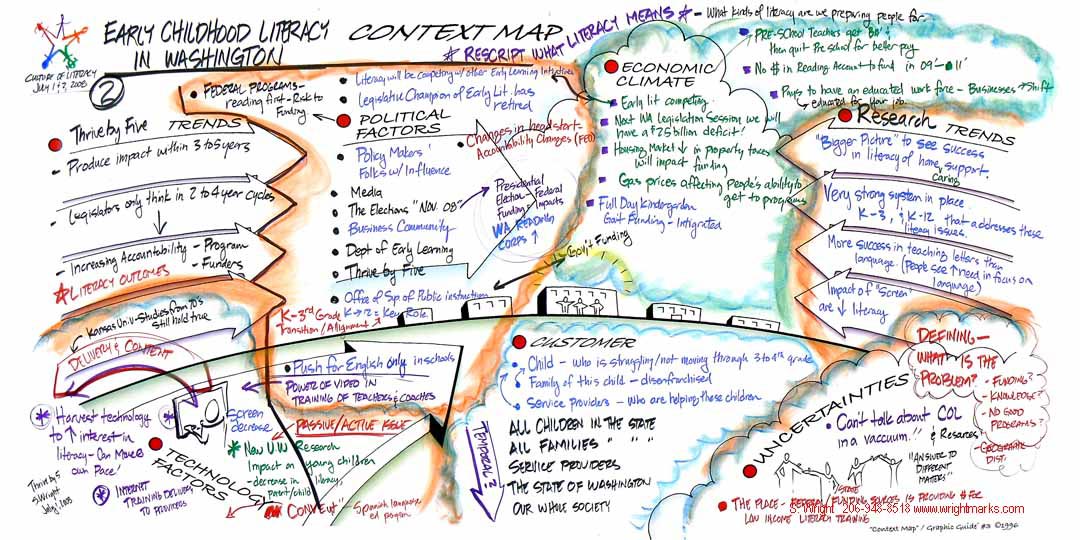 EARLY CHILDHOOD LITERACY
IN WASHINGTON
CONTEXT MAP
* RESCRIPT WHAT LITERACY MEANS * - What kinds of literacy are we preparing people for
CULTURE OF LITERACY
JULY 1 & 3, 2008
2
• FEDERAL PROGRAMS -
reading first - Risk to
Funding
• Literacy will be competing w/ other Early Learning Initiatives
• Legislative Champion of Early Lit. has
retired
POLITICAL
FACTORS
• Changes in headstart -
Accountability Changes (FED)
• Policy Makers'
Folks w/ Influence
• Media
• The Elections "NOV. 08"
• Business Community
• Dept of Early Learning
• Thrive by Five
• Office of Sup of Public instruction
K → 12 = Key Role
Presidential
Election - Federal
Funding Impacts
WA READING
CORPS ↑
Gov't Funding
K-3rd Grade
Transition / Alignment
TRENDS
- Thrive by Five
- Produce impact within 3 to 5 years
- Legislators only think in 2 to 4 year cycles
- Increasing Accountability - Program
- Funders
LITERACY OUTCOMES
Kansas Univ - Studies from 70's
still hold true
ECONOMIC
CLIMATE
Early lit competing
Next WA Legislation Session we will
have a $2.5 billion deficit!
Housing Market ↓ in property taxes
will impact funding
Gas prices affecting people's ability to
get to programs
Full Day Kindergarden
Gait Funding - Intigrated
PRE-SCHOOL Teachers get 'BA' &
then quit Preschool for better pay
No $ in Reading Account to fund in 09 - '11'
Pays to have an educated work force - Businesses → Shift
educated for your job.
Research TRENDS
"Bigger Picture" to see success
in literacy of home, support,
caring
Very strong system in place
K-3, & K-12 that addresses these
literacy issues.
More success in teaching letters than
language. (People see ↑ need in focus on
language)
Impact of "Screen"
are ↓ literacy
DELIVERY & CONTENT
* Harvest technology
to ↑ interest in
literacy - Can Move @
own Pace!
Screen
decrease
TECHNOLOGY
FACTORS
* INTERNET
TRAINING DELIVERS
TO PROVIDERS
Thrive by 5
S Wright
July 1, 2008
• Push for English only in schools
POWER OF VIDEO IN
TRAINING OF TEACHERS & COACHES
PASSIVE/ACTIVE ISSUE
* New U.W. Research
Impact on young children
- decrease in literacy,
Parent/child
- Spanish language
ed program
CUSTOMER
• Child - who is struggling/not moving through 3rd to 4th grade
• Family of this child - disenfranchised
• Service Providers - who are helping these children
TEMPORAL?
ALL CHILDREN IN THE STATE
ALL FAMILIES " " "
SERVICE PROVIDERS
THE STATE OF WASHINGTON
OUR WHOLE SOCIETY
UNCERTAINTIES
• Can't talk about COL
in a vaccuum.!!
& Resources
"ANSWER TO
DIFFERENT
MATTERS"
DEFINING -
WHAT IS THE
PROBLEM?
- FUNDING?
- KNOWLEDGE?
- NO GOOD
PROGRAMS?
- GEOGRAPHIC
DIST.
• THE PLACE - FEDERAL/STATE FUNDING SOURCES IS PROVIDING $ FOR
LOW INCOME LITERACY TRAINING
S. Wright 206-948-8518 www.wrightmarks.com
"Context Map" / Graphic Guide® #3 ©1996